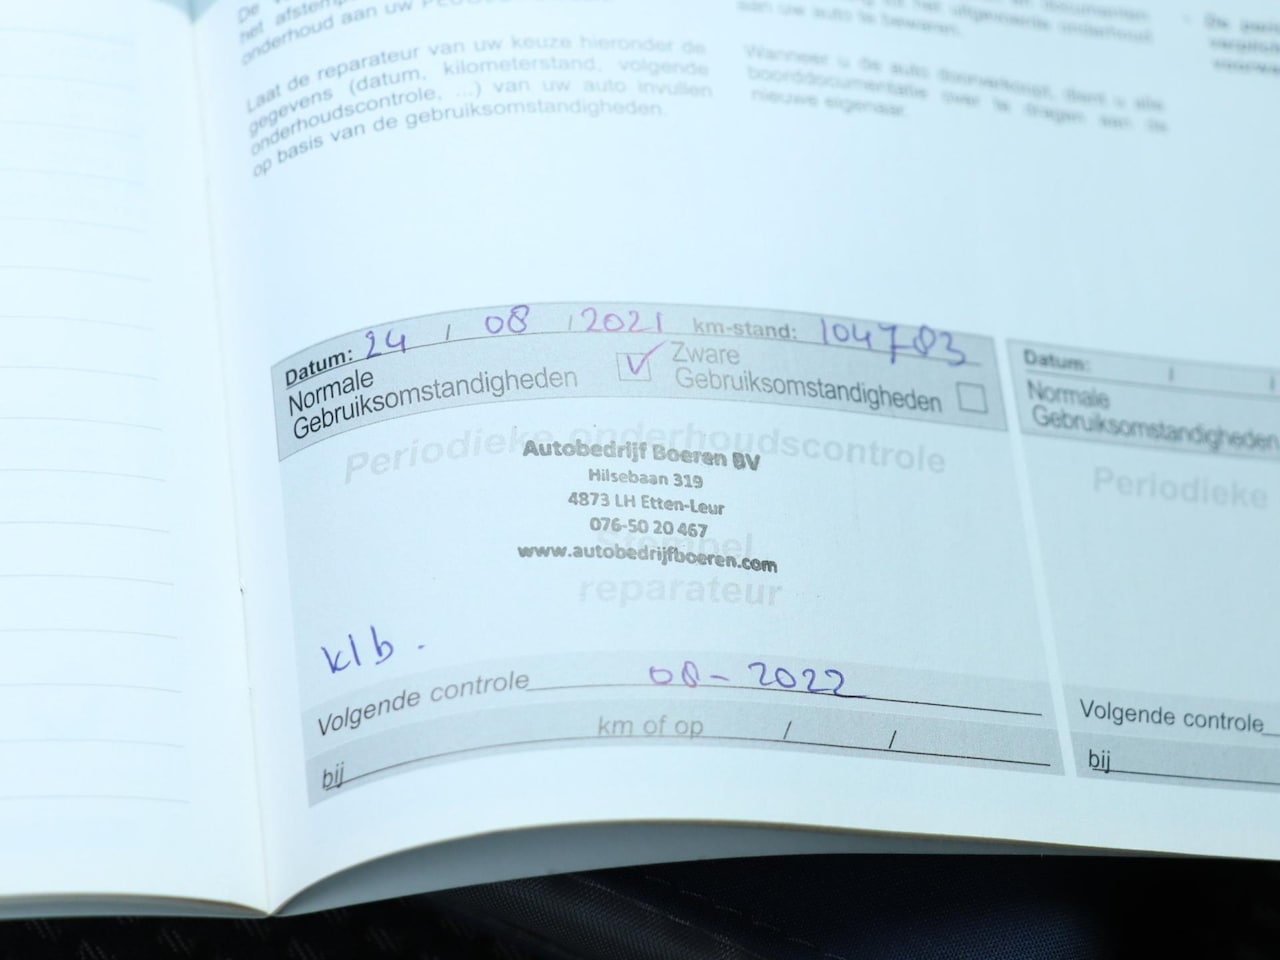 onderhoud aan uw
Laat de reparateur van uw keuze hieronder de
gegevens (datum, kilometerstand, volgende
onderhoudscontrole, ...) van uw auto invullen
op basis van de gebruiksomstandigheden.
aan uw auto te bewaren.
Wanneer u de auto doorverkoopt, dient u alle
boorddocumentatie over te dragen aan de
nieuwe eigenaar.
Datum: 24 / 08 / 2021 km-stand: 104783
Normale
Gebruiksomstandigheden V Zware
Gebruiksomstandigheden
Periodieke onderhoudscontrole
Autobedrijf Boeren BV
Hilsebaan 319
4873 LH Etten-Leur
076-50 20 467
www.autobedrijfboeren.com
Stempel
reparateur
klb.
Volgende controle 08-2022
bij km of op / /
Datum: / /
Normale
Gebruiksomstandigheden
Periodieke
Volgende controle
bij